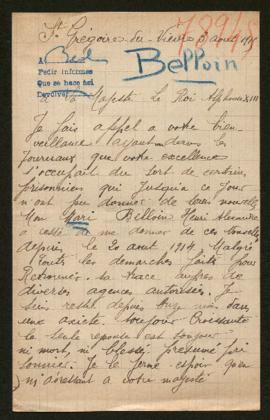 St Grégoire du Vièvre 3 août 1915
78945
A Bed
Pedir informes
Que se hace aci
Devolver
Belloin
Sa Majesté Le Roi Alphonse XIII
Je fais appel a votre bien-
veillance ayant vu dans les
journaux que votre excellence
s'occupait du sort de certains
prisonniers qui jusqu'a ce jour
n'ont pu donner de leurs nouvelles
Mon Mari Belloin Henri
a cessé de me donner de ces nouvelles
depuis le 20 aout 1914 Malgré
toute les demarches faite pour
Retrouver sa trace auprès de
diverses agences autorisées Je
suis resté depuis dans
une axieté toujour Croissante
la seule reponse est toujour
ni mort, ni blessé, présumé pri
sonnier. Je le ferme espoir que
ni a votre majesté